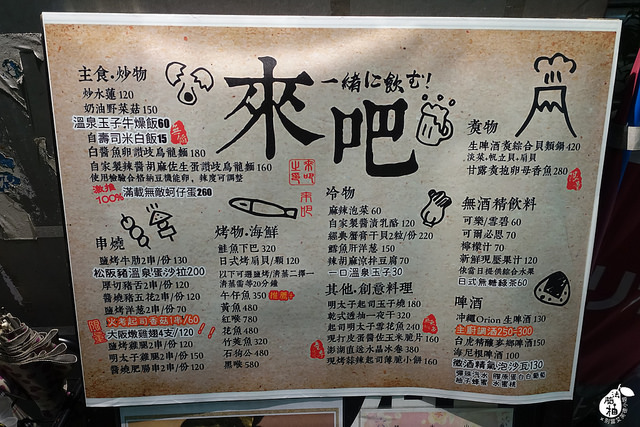 來吧
一緒に飲む!
主食.炒物
炒水蓮 120
奶油野菜菇 150
溫泉玉子牛燥飯60
自壽司米白飯15
白醬魚卵讚岐烏龍麵 180
自家製辣醬胡麻佐生蛋讚岐烏龍麵 160
使用檢驗合格納豆機能卵, 辣度可調整
激推100%
滿載無敵蚵仔蛋260
串燒
鹽烤牛肋2串/份 130
松阪豬溫泉蛋沙拉200
厚切豬舌2串/份 120
醬燒豬五花2串/份 120
鹽烤洋蔥2串/份 70
火烤起司香菇1串/60
大阪燉雞翅4支/120
鹽烤雞腿2串/份 120
明太子雞腿2串/份 150
醬燒肥腸串2串/份 120
烤物.海鮮
鮭魚下巴 320
日式烤扇貝/顆 120
以下可選鹽烤/清蒸二擇一
清蒸需等20分鐘
午仔魚 350
推薦
黃魚 480
紅喉 780
花魚 480
竹筴魚 320
石狗公 480
黑喉 580
冷物
麻辣泡菜 60
自家製醬漬乳酪 120
經典蟹膏干貝2粒/份 220
鱈魚肝洋蔥 150
辣胡麻涼拌豆腐 70
一口溫泉玉子30
其他.創意料理
明太子起司玉子燒 180
乾式透抽一夜干 320
起司明太子雪花魚 240
現打皮蛋醬佐玉米脆片 160
澎湖直送水晶冰卷 380
現烤蒜辣起司薄脆小餅 160
煮物
生啤酒煮綜合貝類鍋 420
淡菜.帆立貝.扇貝
甘露煮抱卵母香魚 280
無酒精飲料
可樂/雪碧 60
可爾必思 70
檸檬汁 70
新鮮現壓果汁 120
依當日提供綜合水果
日式無糖綠茶60
啤酒
沖繩Orion 生啤酒 130
主廚調酒250-300
台虎精釀麥鄉啤酒150
海尼根啤酒 100
微酒精氣泡沙瓦130
彈珠汽水
柚子蜂蜜 水蜜桃